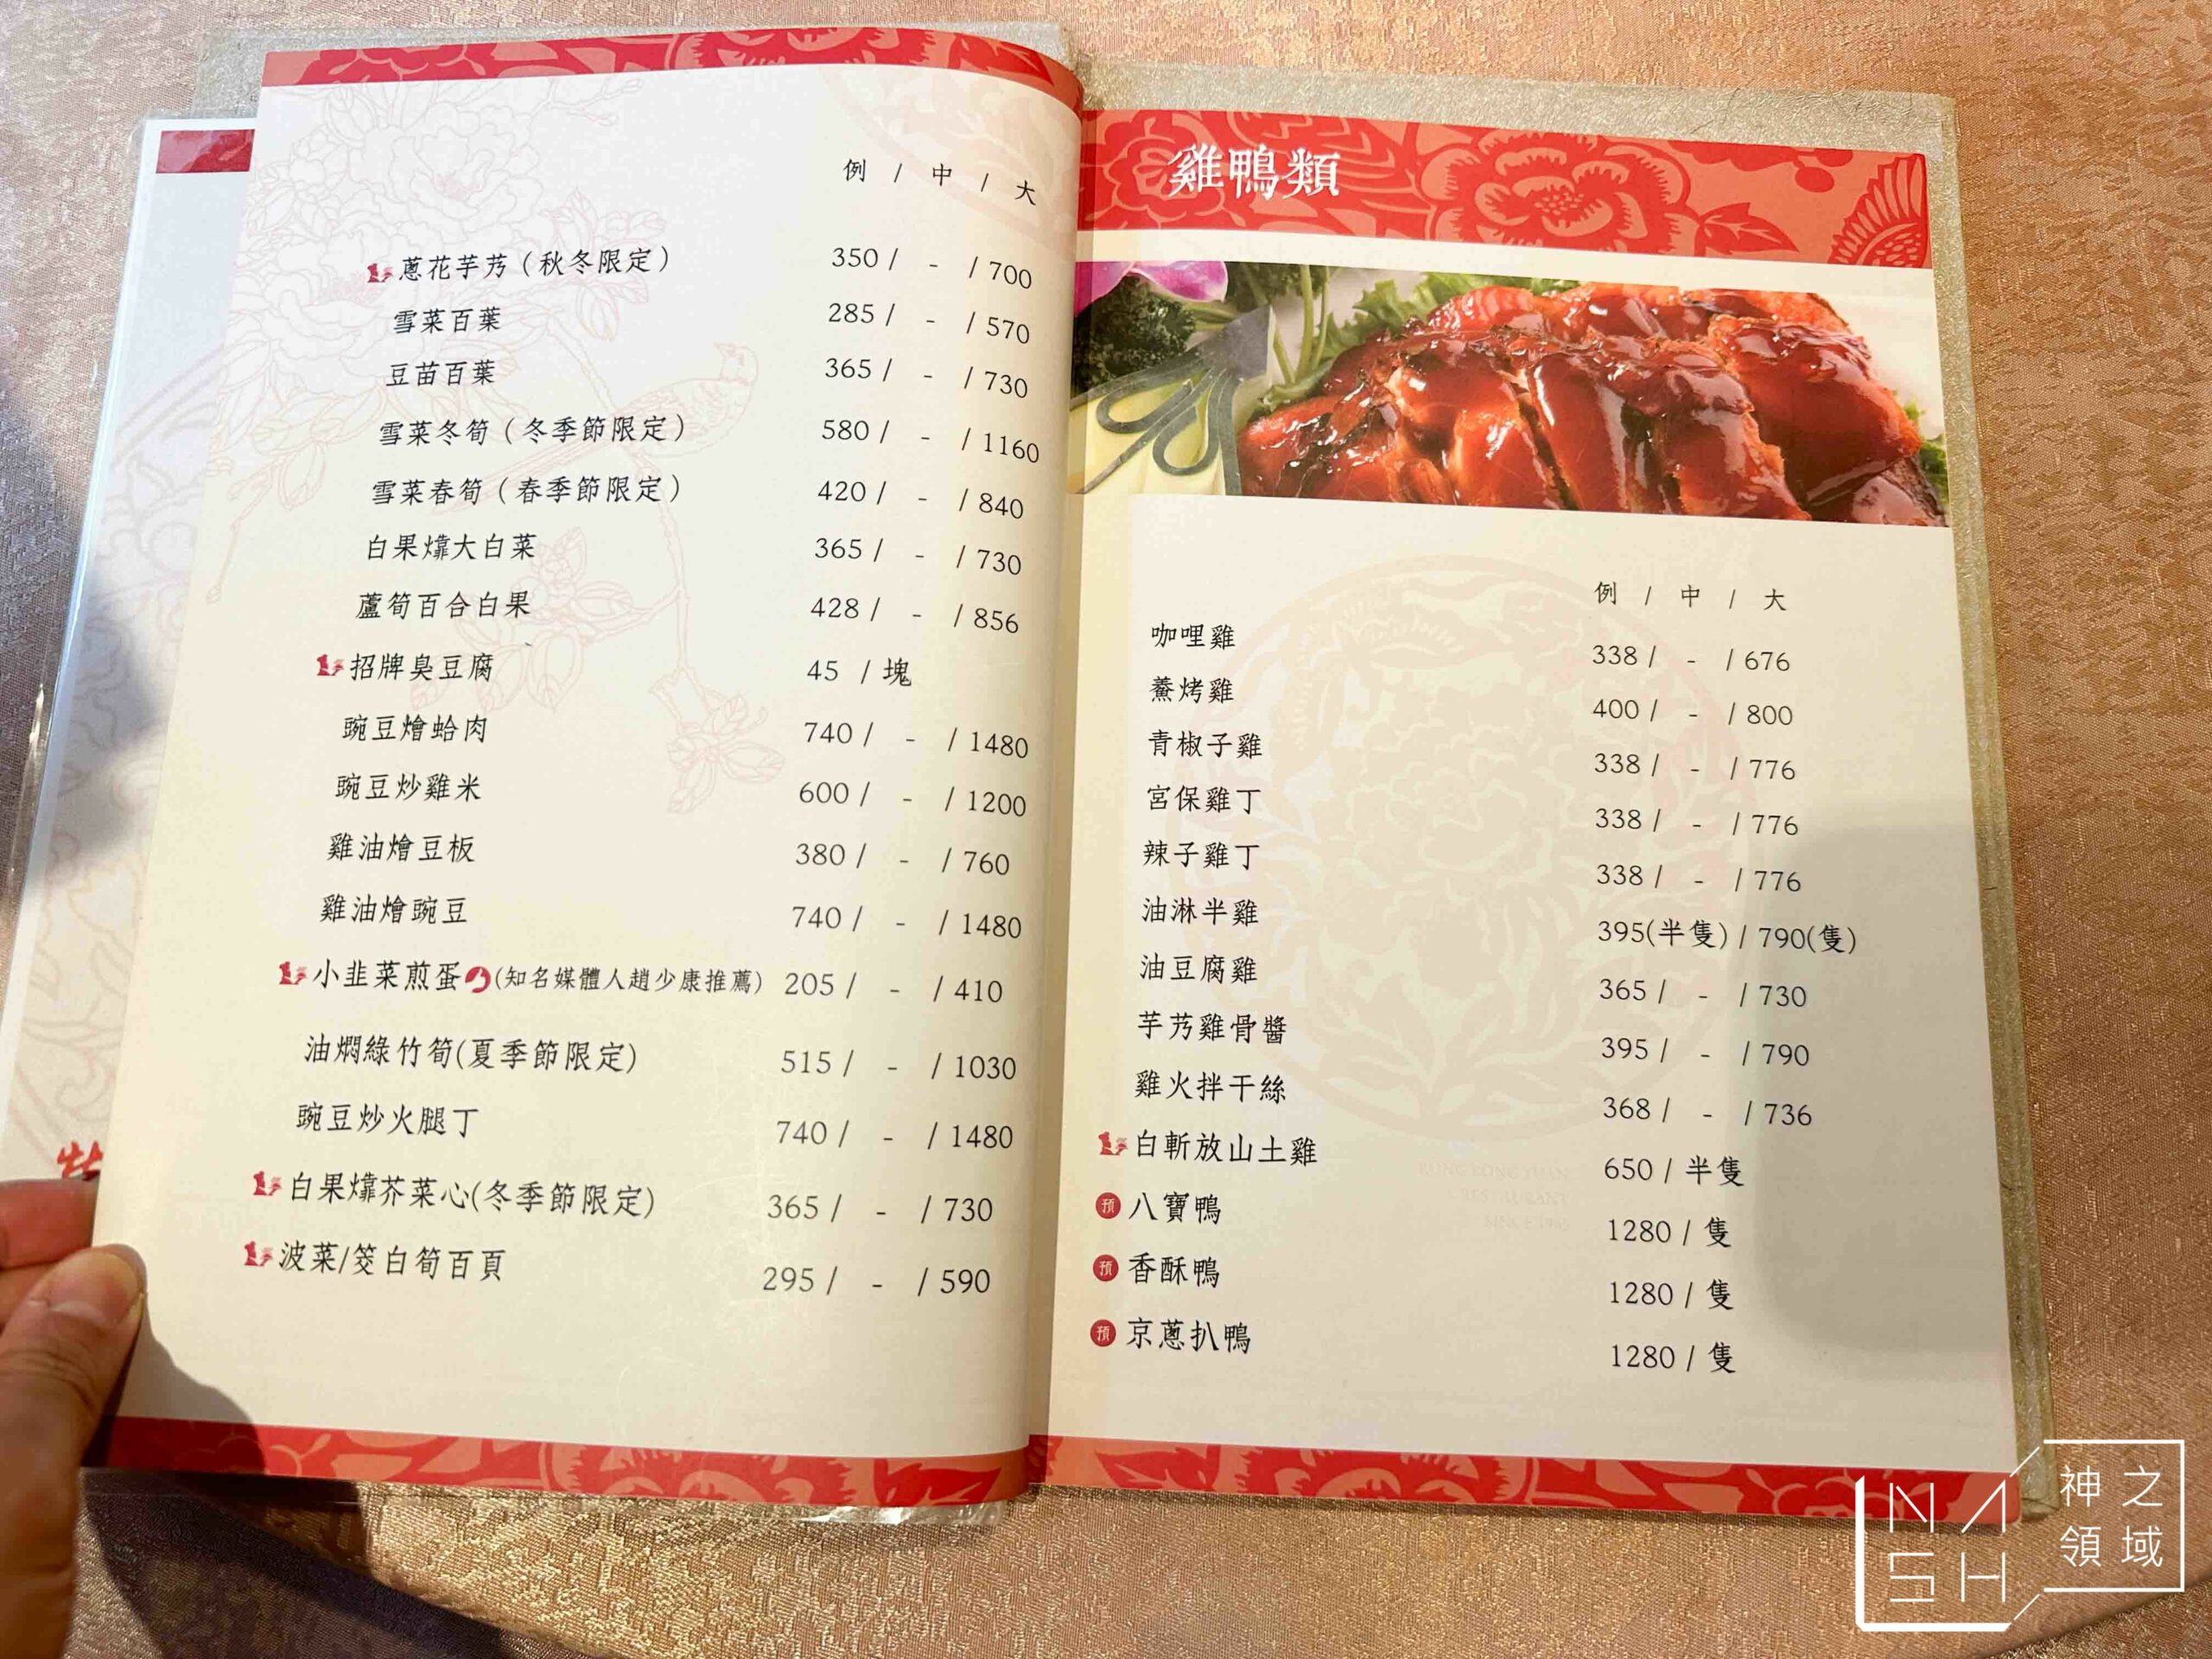 例 / 中 / 大
蔥花芋艿（秋冬限定） 350 / - / 700
雪菜百葉 285 / - / 570
豆苗百葉 365 / - / 730
雪菜冬筍（冬季節限定） 580 / - / 1160
雪菜春筍（春季節限定） 420 / - / 840
白果㸆大白菜 365 / - / 730
蘆筍百合白果 428 / - / 856
招牌臭豆腐 45 / 塊
豌豆燴蛤肉 740 / - / 1480
豌豆炒雞米 600 / - / 1200
雞油燴豆板 380 / - / 760
雞油燴豌豆 740 / - / 1480
小韭菜煎蛋(知名媒體人趙少康推薦) 205 / - / 410
油燜綠竹筍(夏季節限定) 515 / - / 1030
豌豆炒火腿丁 740 / - / 1480
白果㸆芥菜心(冬季節限定) 365 / - / 730
波菜/筊白筍百頁 295 / - / 590
雞鴨類
例 / 中 / 大
咖哩雞 338 / - / 676
鯗烤雞 400 / - / 800
青椒子雞 338 / - / 776
宮保雞丁 338 / - / 776
辣子雞丁 338 / - / 776
油淋半雞 395(半隻) / 790(隻)
油豆腐雞 365 / - / 730
芋艿雞骨醬 395 / - / 790
雞火拌干絲 368 / - / 736
白斬放山土雞 650 / 半隻
預 八寶鴨 1280 / 隻
預 香酥鴨 1280 / 隻
預 京蔥扒鴨 1280 / 隻
NASH
神之領域